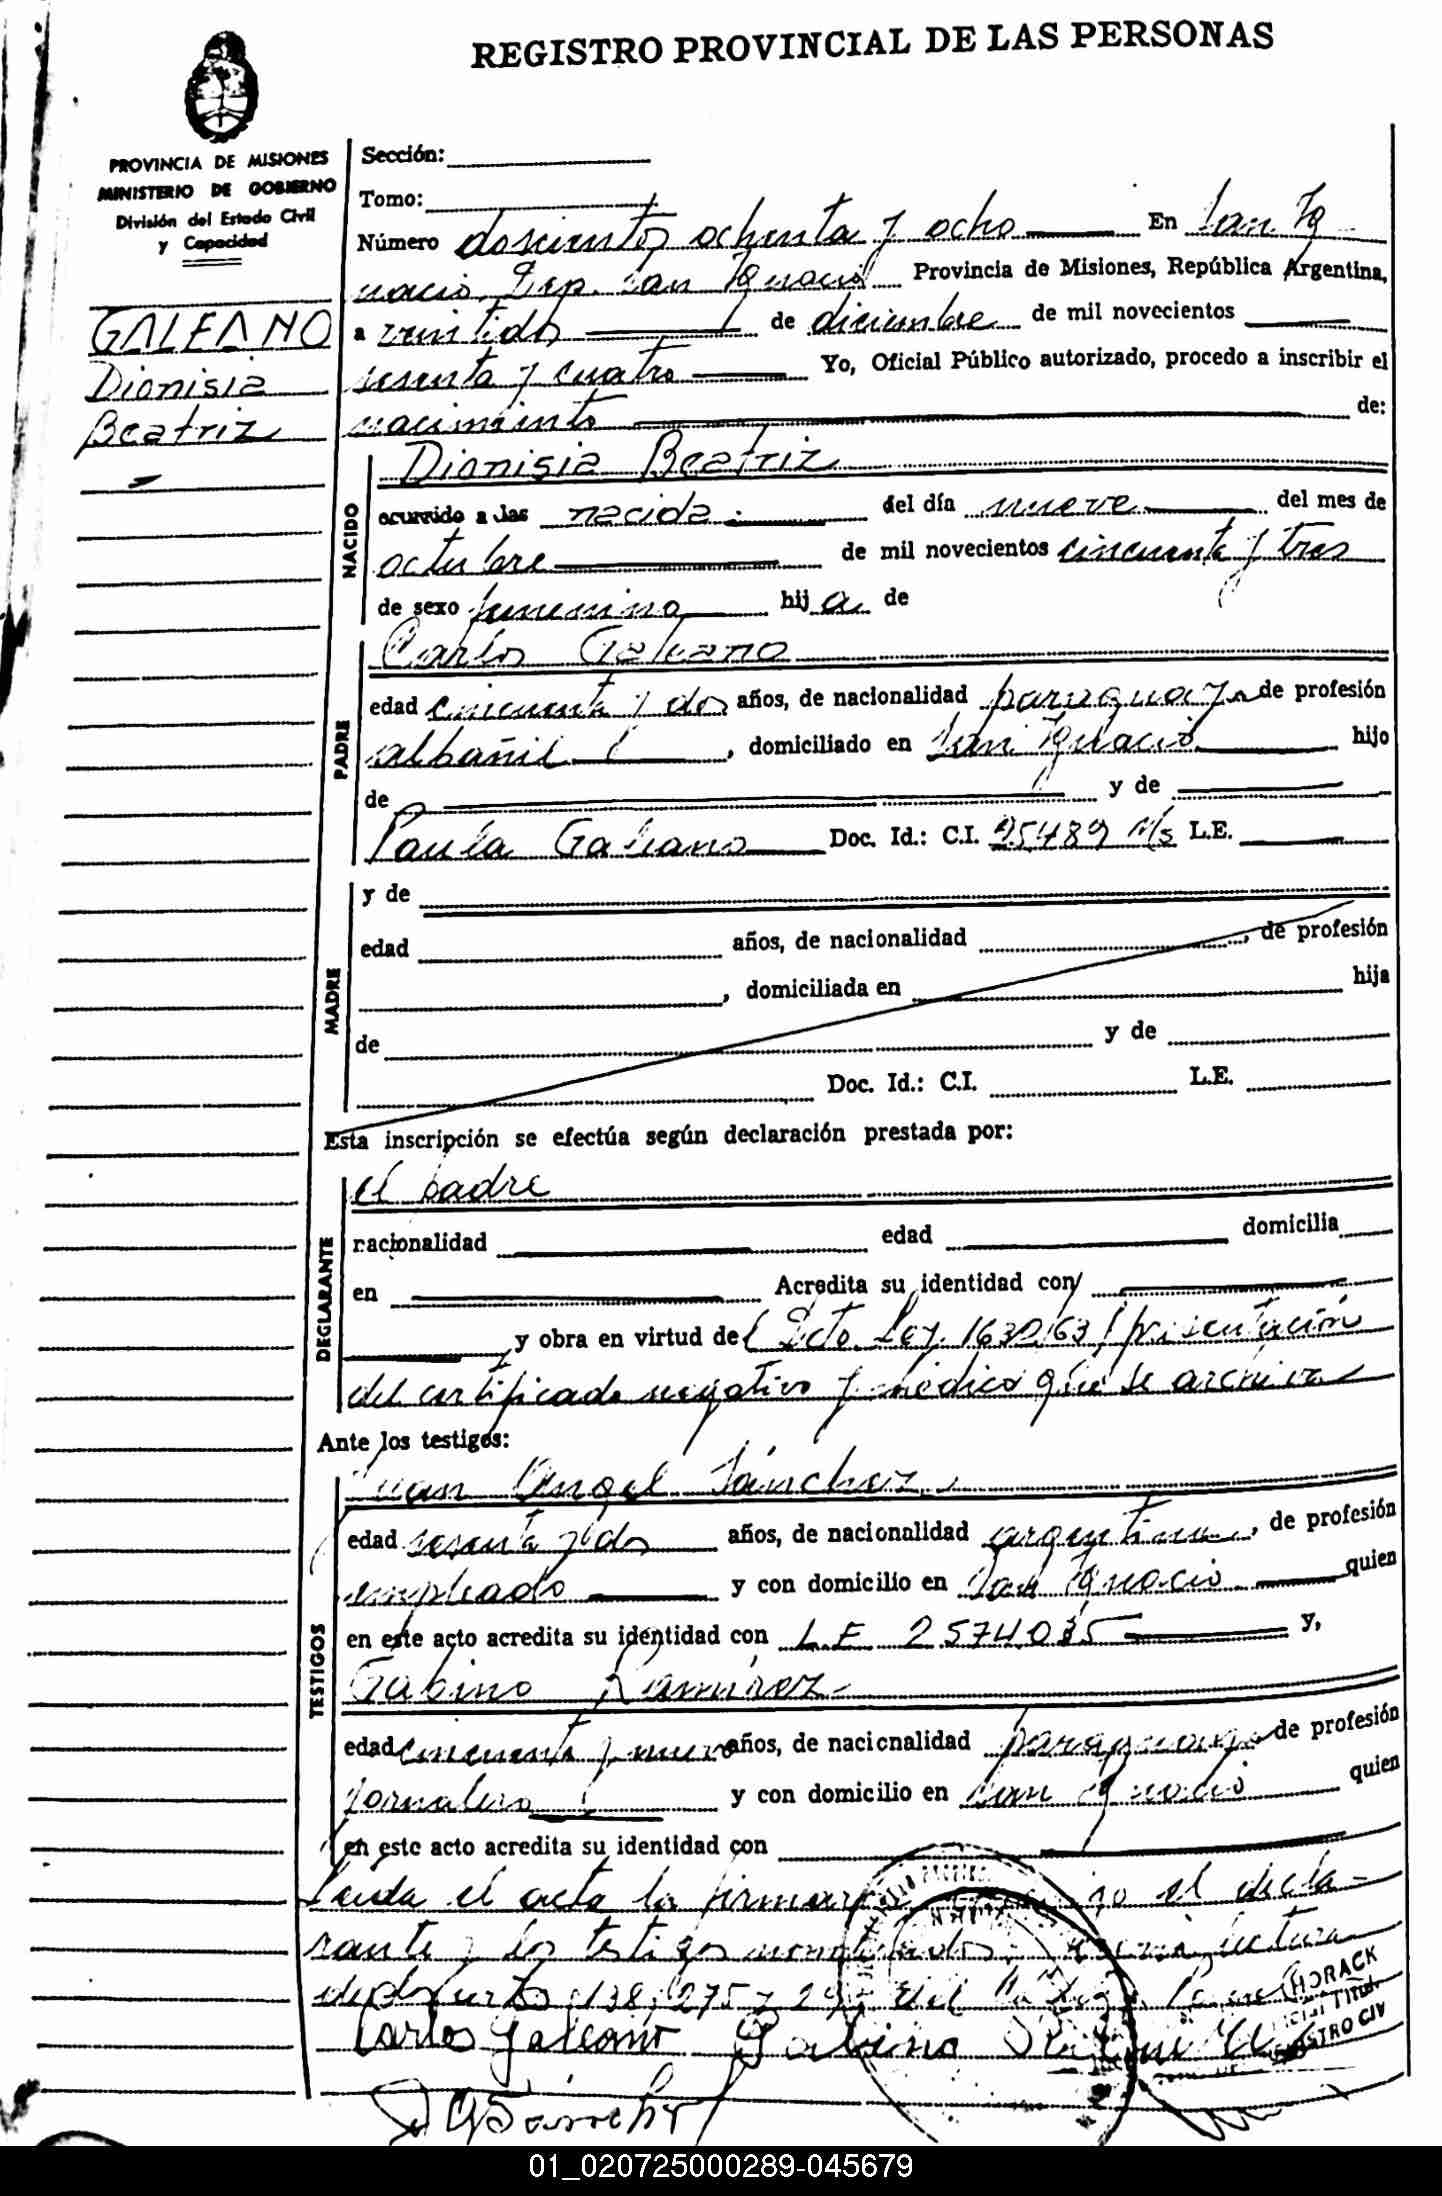 REGISTRO PROVINCIAL DE LAS PERSONAS
PROVINCIA DE MISIONES
MINISTERIO DE GOBIERNO
División del Estado Civil
y Capacidad
GALEANO
Dionisia
Beatriz
Sección:
Tomo:
Número doscientos ochenta y ocho En San Ig
nacio, Dep. San Ignacio Provincia de Misiones, República Argentina,
a veintidos de diciembre de mil novecientos
sesenta y cuatro Yo, Oficial Público autorizado, procedo a inscribir el
nacimiento de:
NACIDO
Dionisia Beatriz
ocurrido a las nacida del día nueve del mes de
octubre de mil novecientos cincuenta y tres
de sexo femenino hija de
PADRE
Carlos Galeano
edad cincuenta y dos años, de nacionalidad paraguaya de profesión
albañil, domiciliado en San Ignacio hijo
de y de
Paula Galeano Doc. Id.: C.I. 25489 M/s L.E.
MADRE
y de
edad años, de nacionalidad , de profesión
, domiciliada en hija
de y de
Doc. Id.: C.I. L.E.
Esta inscripción se efectúa según declaración prestada por:
DECLARANTE
el padre
nacionalidad edad domicilia
en Acredita su identidad con
y obra en virtud de Dcto. Ley. 1632/63 presentación
del certificado negativo y médico que se archiva
Ante los testigos:
TESTIGOS
Juan Angel Sánchez
edad sesenta y dos años, de nacionalidad argentina, de profesión
empleado y con domicilio en San Ignacio quien
en este acto acredita su identidad con L.E 2574035 y,
Gabino Ramírez
edad cincuenta y nueve años, de nacionalidad paraguaya de profesión
Jornalero y con domicilio en San Ignacio quien
en este acto acredita su identidad con
Leida el acta la firman el decla-
rante y los testigos nombrados lectura
138, 275 y del
Carlos Galeano Gabino
HORACK
TITULAR
JA Sánchez
01_020725000289-045679